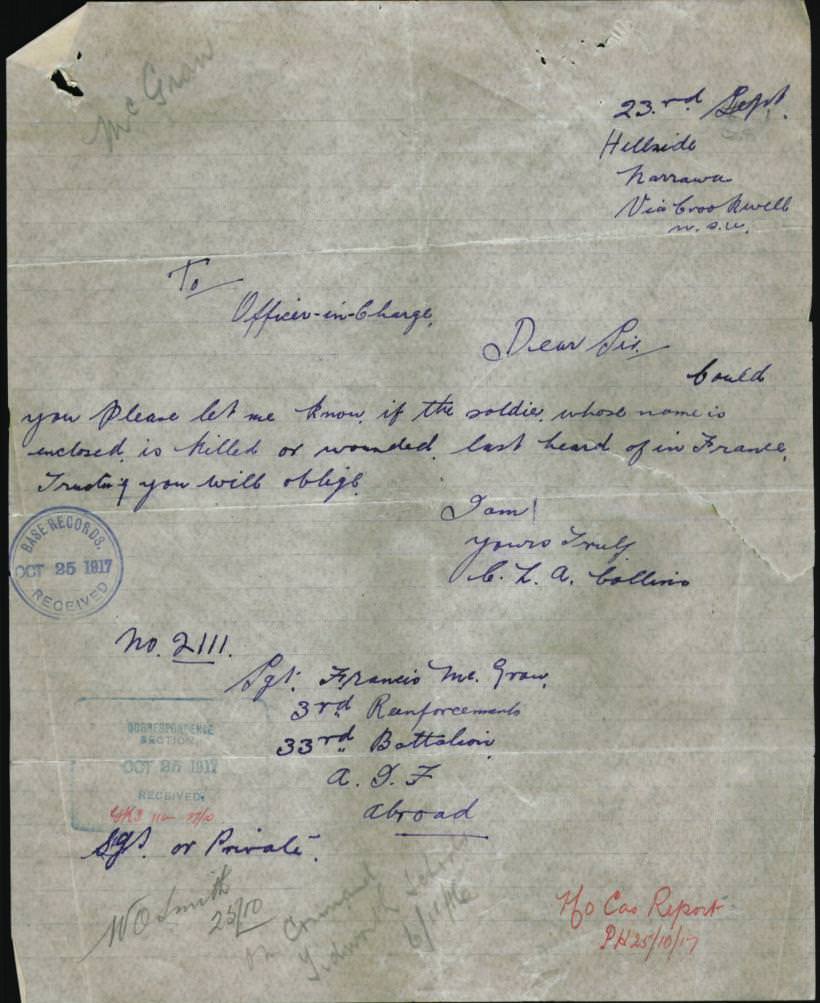 Mc Graw
23.rd Sept.
Hillside
Narrawa
Via Crookwell
N.S.W.
To
Officer-in-Charge,
Dear Sir.
Could
you Please let me know, if the soldier, whose name is
enclosed, is killed or wounded, last heard of in France,
Trusting you will oblige
I am
yours Truly
C. L. A. Collins
BASE RECORDS.
OCT 25 1917
RECEIVED
No. 2111.
Sgt. Francis Mc. Graw,
3rd Reinforcements
33rd Battalion
A. I. F
abroad
CORRESPONDENCE
SECTION.
OCT 25 1917
RECEIVED.
Sgt. or Private.
WO Smith
25/10
Command School
6/11/16
No Cas Report
PH 25/10/17